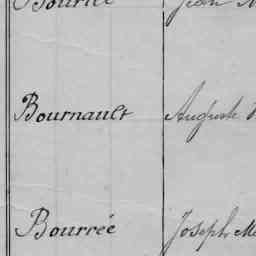 Jean
Bournault Auguste
Bourrée Joseph